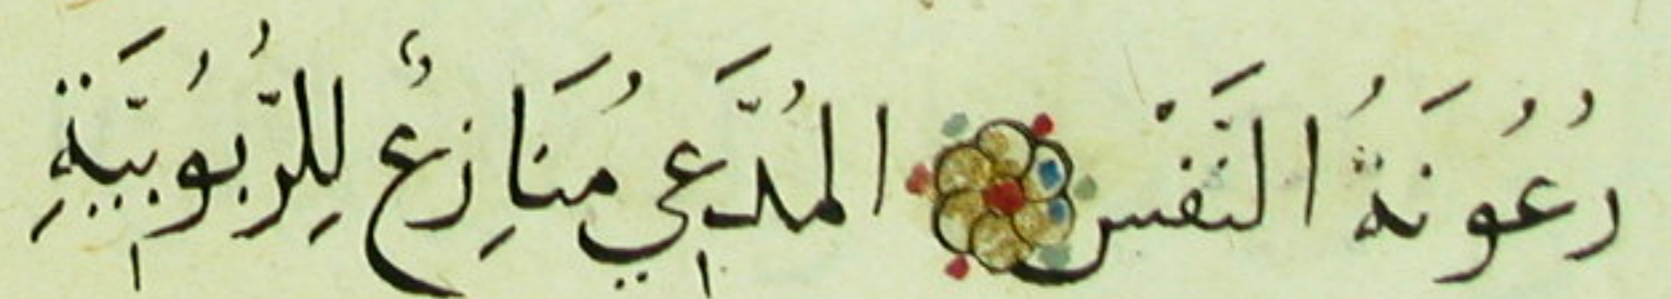 رُعُونَةُ النَّفْسِ المُدَّعِي مُنَازِعٌ لِلرُّبُوبِيَّةِ